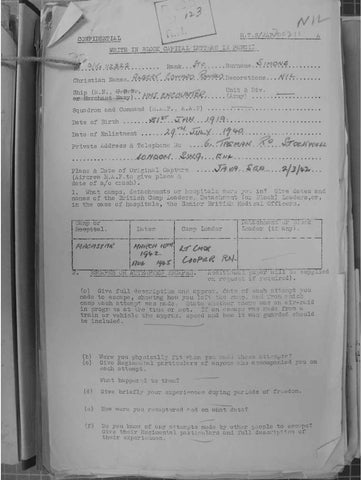 123
NIL
CONFIDENTIAL
WRITE IN BLOCK CAPITAL LETTERS IN PENCIL
Rank Sto Surname SIMONS
Christian Names ALBERT EDWARD Decorations NIL
Ship (R.N. HMS ENCOUNTER Unit & Div.
or Merchant Navy) (Army)
Squadron and Command (R.A.F., R.A.F)
Date of Birth 21ST JAN 1919
Date of Enlistment 29TH JULY 1940
Private Address & Telephone No 6. TREMAN RD STOCKWELL
LONDON S.W.9. ENG
Place & Date of Original Capture JAVA SEA 2/3/42
(Aircrew R.A.F. to give place &
date of a/c crash).
1. What camps, detachments or hospitals were you in? Give dates and
names of the British Camp Leaders, Detachment (or Block) Leaders, or,
in the case of hospitals, the Senior British Medical Officers.
Camp or Dates Camp Leader Detachment or Block
Hospital. Leader (if any).
MACASSAR MARCH 10TH LT CMDR
1942 COOPER R.N.
AUG 1945
2. (Additional paper will be supplied
on request if required).
(a) Give full description and approx. date of each attempt you
made to escape, showing how you left the camp, and from which
camp each attempt was made. State whether there was an air-raid
in progress at the time or not. If an escape was made from a
train or vehicle the approx. speed and how it was guarded should
be included.
(b) Were you physically fit when you made these attempts?
(c) Give Regimental particulars of anyone who accompanied you on
each attempt.
What happened to them?
(d) Give briefly your experiences during periods of freedom.
(e) How were you recaptured and on what date?
(f) Do you know of any attempts made by other people to escape?
Give their Regimental particulars and full description of
their experiences.